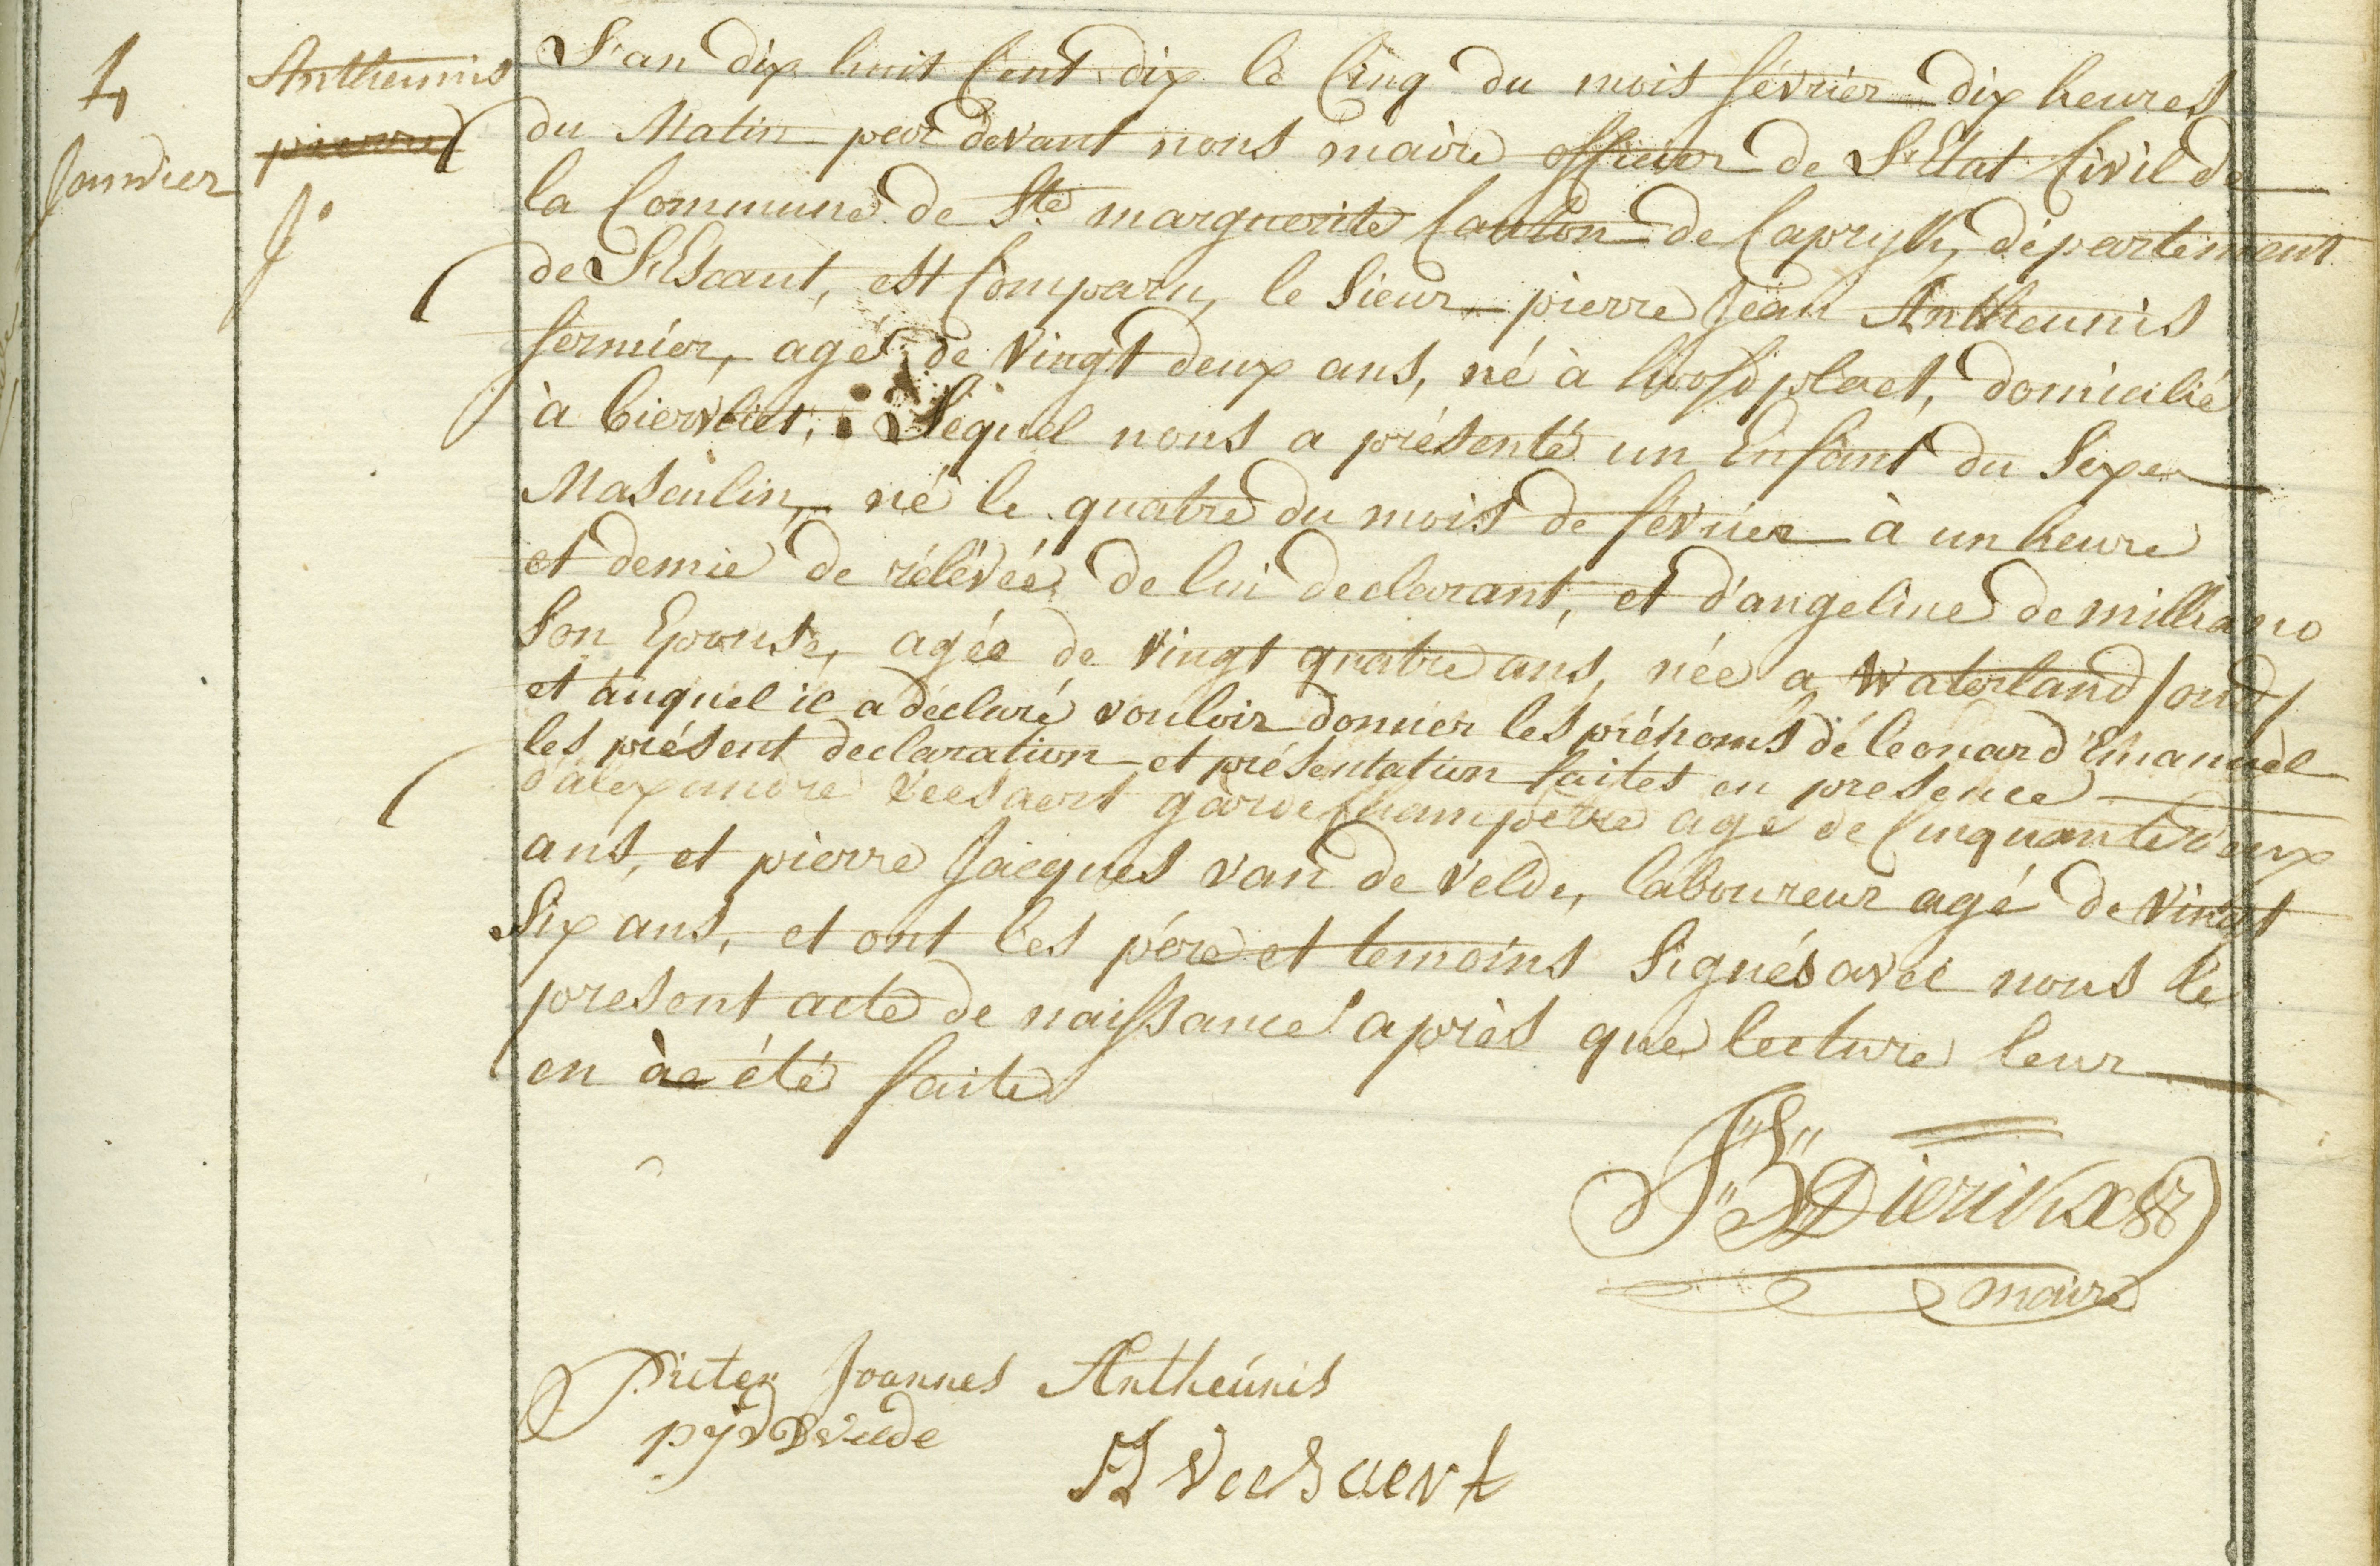 4
Janvier
Antheunis
J.
L'an dix huit Cent dix le Cinq du mois février dix heures
du Matin par devant nous maire officier de L'Etat Civil de
la Commune de Ste marguerite Canton de Capryk, département
de L'Escaut, est Comparu, le Sieur pierre Jean Antheunis
fermiér, agé de vingt deux ans, né à hoofdplaet, domicilié
à biervliet, Lequel nous a présenté un Enfant du Sexe
Masculin, né le quatre du mois de fevrier à un heure
et demie de rélévée de lui declarant, et d'angeline de milliano
Son Epouse, agée de vingt quatre ans, née a Waterland
et auquel il a déclaré vouloir donner les prénoms de leonard Emanuel
les présent declaration et présentation faites en presence
d'alexandre veesaert garde Champetre agé de Cinquante deux
ans, et pierre Jacques van de velde, laboureur agé de vingt
Six ans, et ont les pére et temoins Signés avec nous le
present acte de naissance après que lecture leur
en à été faite
Dierikx
maire
Pieter Joannes Antheúnis
veesaert